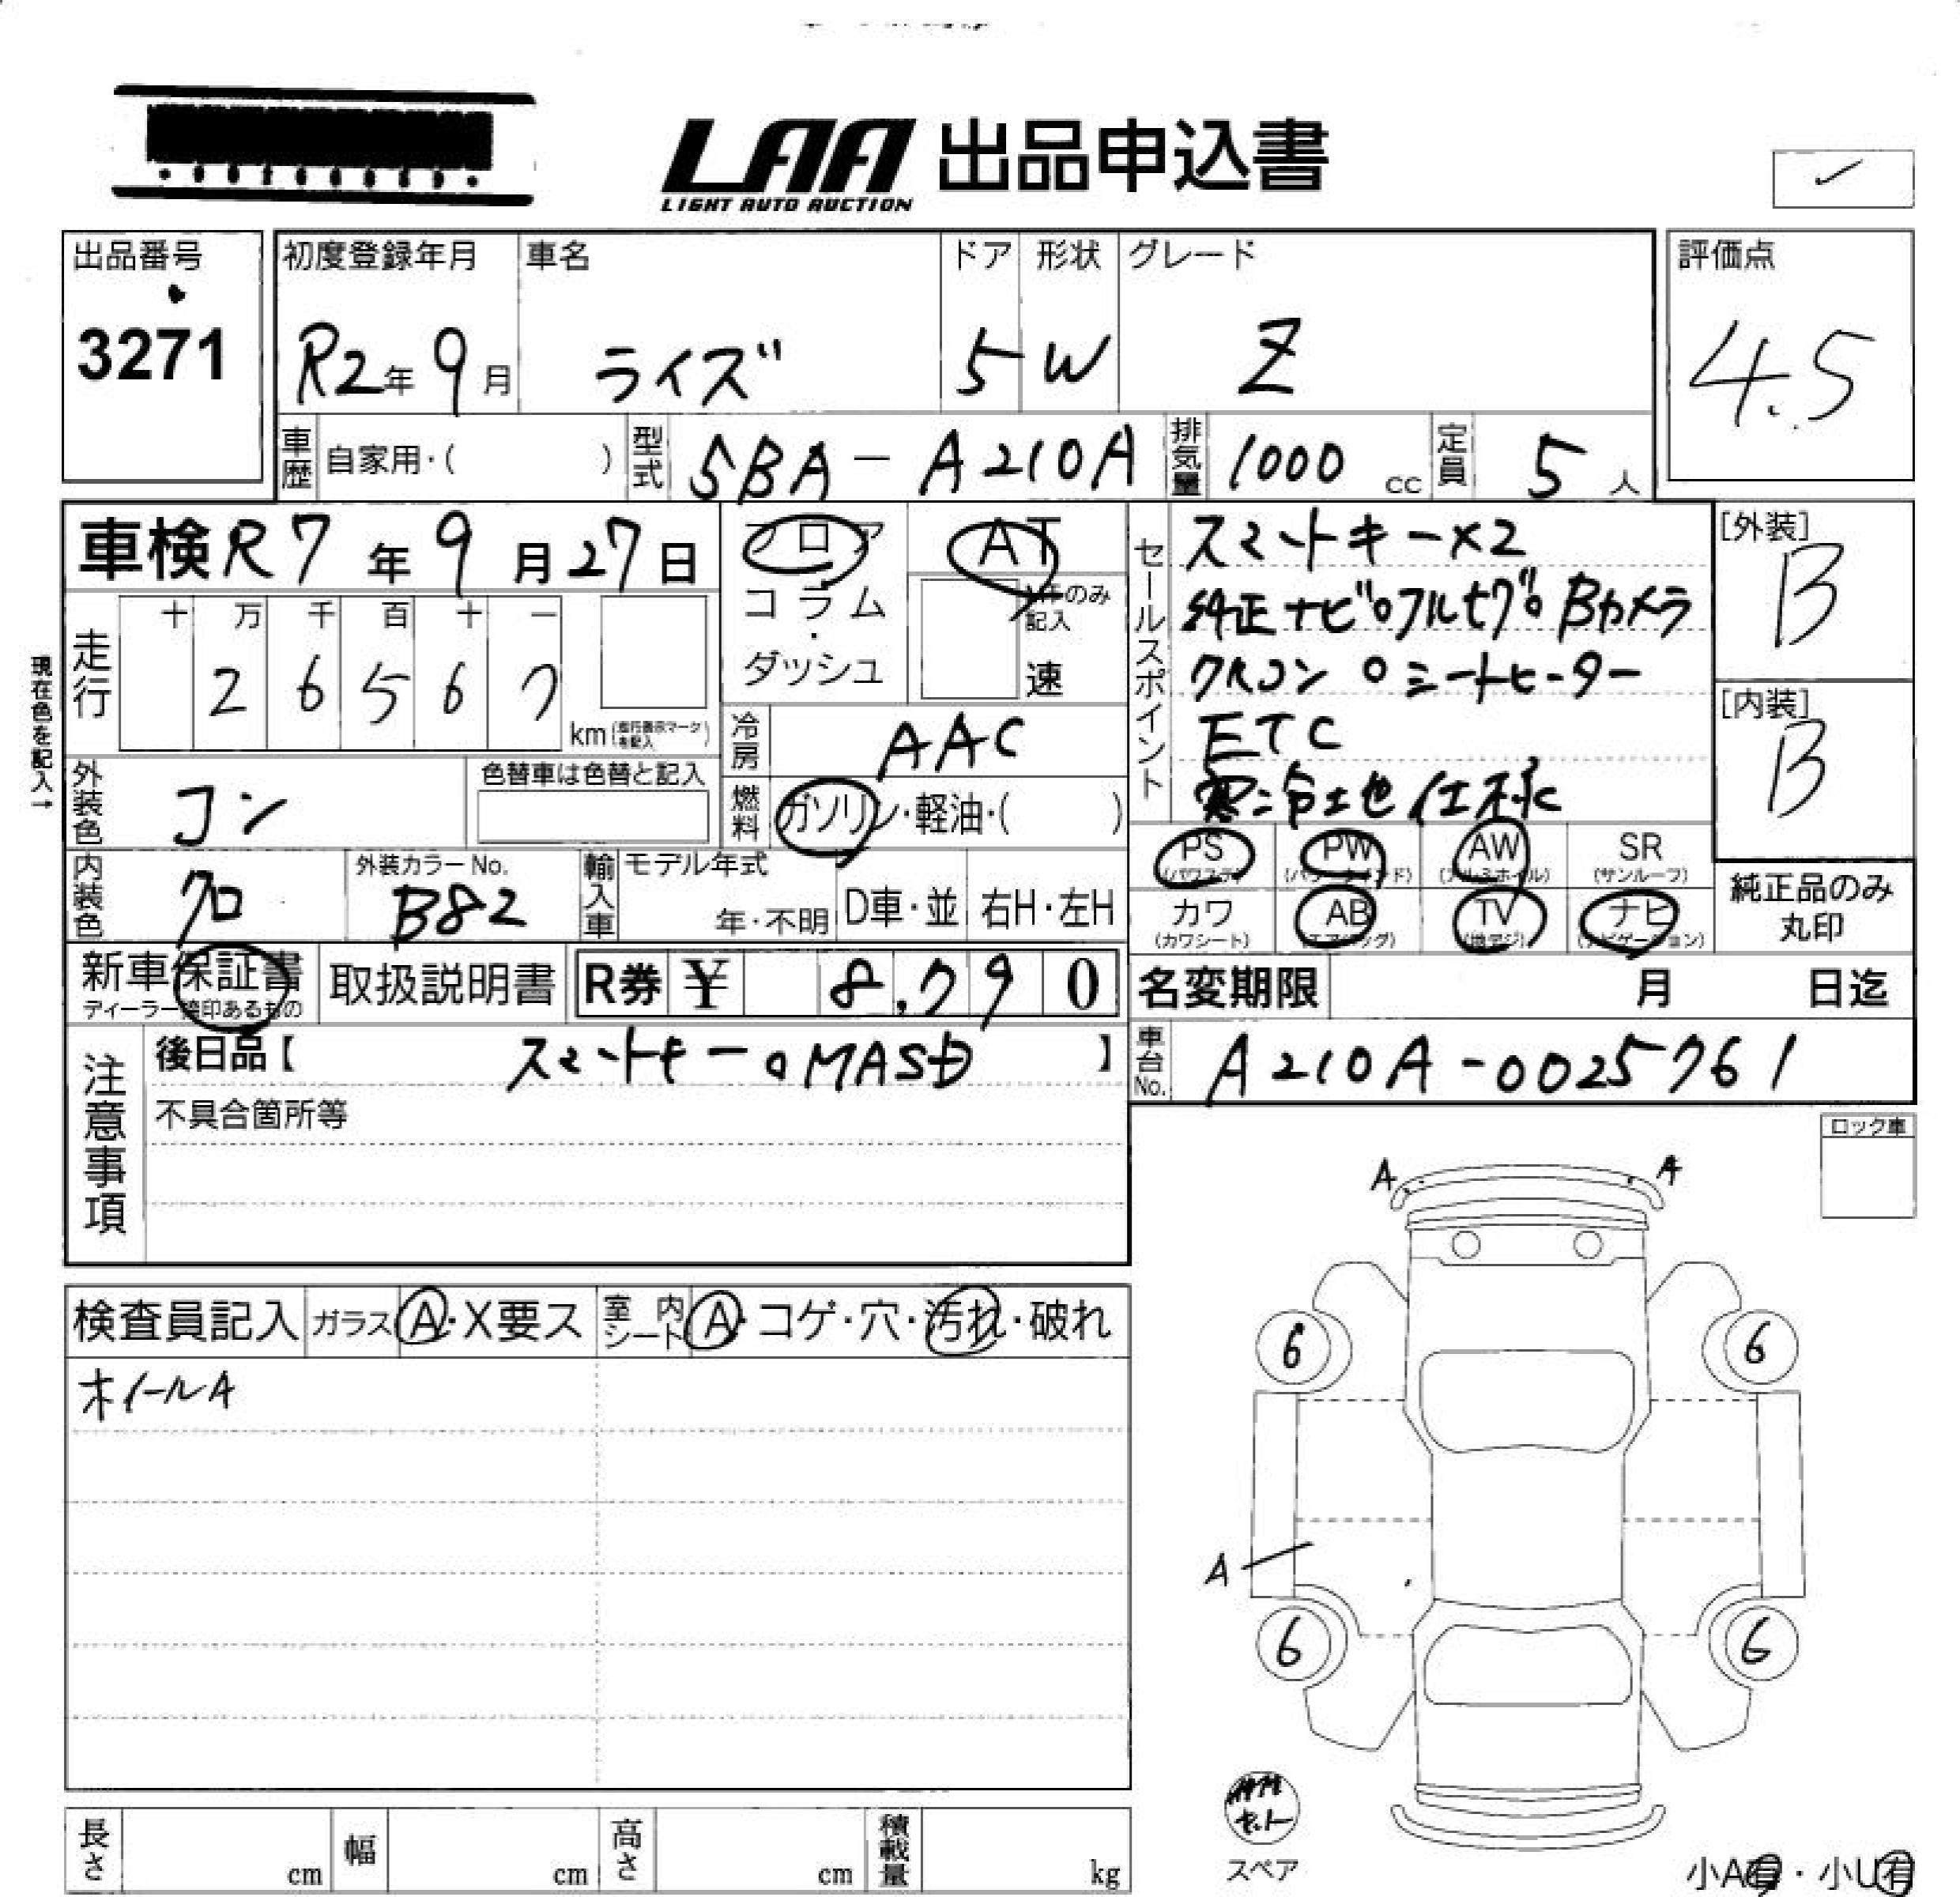 LAA 出品申込書
LIGHT AUTO AUCTION
出品番号
3271
初度登録年月
R2年 9月
車名
ライズ
ドア
5
形状
W
グレード
Z
評価点
4.5
車歴 自家用・( )
型式 5BA-A210A
排気量 1000 cc
定員 5 人
車検 R7年 9月 27日
フロア
コラム
・
ダッシュ
AT
MTのみ
記入
速
セールスポイント
スマートキー×2
純正ナビ○フルセグ○Bカメラ
クルコン ○シートヒーター
ETC
寒冷地仕様
[外装]
B
[内装]
B
現在色を記入→
走行
十 万 千 百 十 一
2 6 5 6 7
km (走行表示マークを記入)
冷房 AAC
外装色 コン
色替車は色替と記入
燃料 ガソリン・軽油・( )
内装色 クロ
外装カラーNo.
B82
輸入車
モデル年式
年・不明
D車・並
右H・左H
PS
(パワステ)
PW
(パワーウインド)
AW
(アルミホイル)
SR
(サンルーフ)
カワ
(カワシート)
AB
(エアバッグ)
TV
(地デジ)
ナビ
(ナビゲーション)
純正品のみ
丸印
新車保証書
取扱説明書
R券 ¥ 8,790
名変期限 月 日迄
注意事項
後日品【 スマートキー○ 】
不具合箇所等
車台No. A210A-0025761
ロック車
A
A
検査員記入
ガラス A・X要ス
室内シート A・コゲ・穴・汚れ・破れ
ホイールA
6
6
A
6
6
スペア
長さ cm
幅 cm
高さ cm
積載量 kg
小A有・小U有